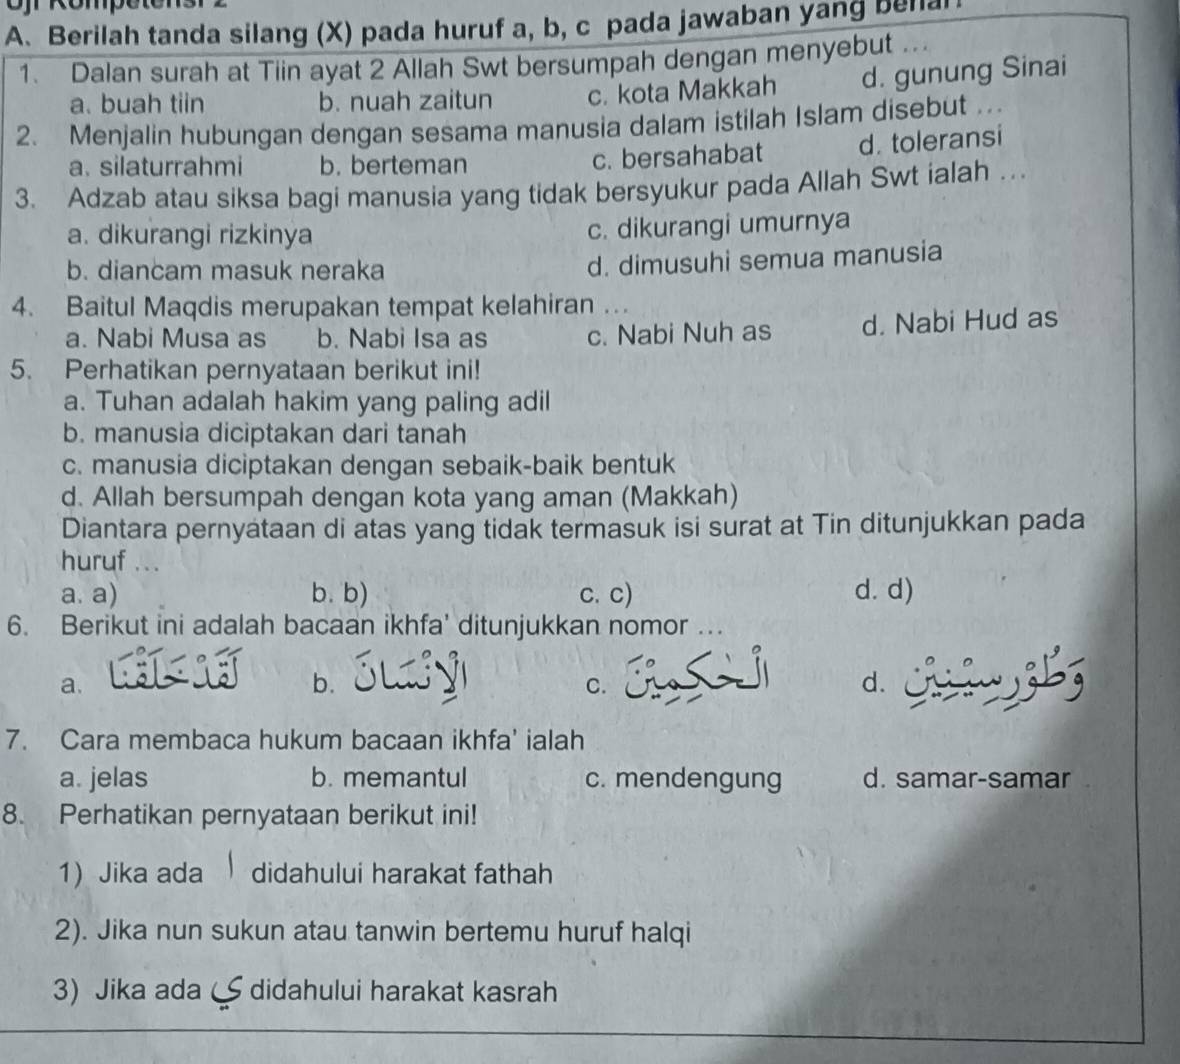 Uji Kompetensi 2
A. Berilah tanda silang (X) pada huruf a, b, c pada jawaban yang benar!
1. Dalan surah at Tiin ayat 2 Allah Swt bersumpah dengan menyebut ...
a. buah tiin b. nuah zaitun c. kota Makkah d. gunung Sinai
2. Menjalin hubungan dengan sesama manusia dalam istilah Islam disebut ...
a. silaturrahmi b. berteman c. bersahabat d. toleransi
3. Adzab atau siksa bagi manusia yang tidak bersyukur pada Allah Swt ialah ...
a. dikurangi rizkinya c. dikurangi umurnya
b. diancam masuk neraka d. dimusuhi semua manusia
4. Baitul Maqdis merupakan tempat kelahiran ...
a. Nabi Musa as b. Nabi Isa as c. Nabi Nuh as d. Nabi Hud as
5. Perhatikan pernyataan berikut ini!
a. Tuhan adalah hakim yang paling adil
b. manusia diciptakan dari tanah
c. manusia diciptakan dengan sebaik-baik bentuk
d. Allah bersumpah dengan kota yang aman (Makkah)
Diantara pernyataan di atas yang tidak termasuk isi surat at Tin ditunjukkan pada
huruf ...
a. a) b. b) c. c) d. d)
6. Berikut ini adalah bacaan ikhfa' ditunjukkan nomor ...
a. لَقَدْخَلَقْنَا b. الْإِنْسَانَ c. الْحٰكِمِيْنَ d. وَطُوْرِسِيْنِيْنِ
7. Cara membaca hukum bacaan ikhfa' ialah
a. jelas b. memantul c. mendengung d. samar-samar
8. Perhatikan pernyataan berikut ini!
1) Jika ada ا didahului harakat fathah
2). Jika nun sukun atau tanwin bertemu huruf halqi
3) Jika ada ي didahului harakat kasrah